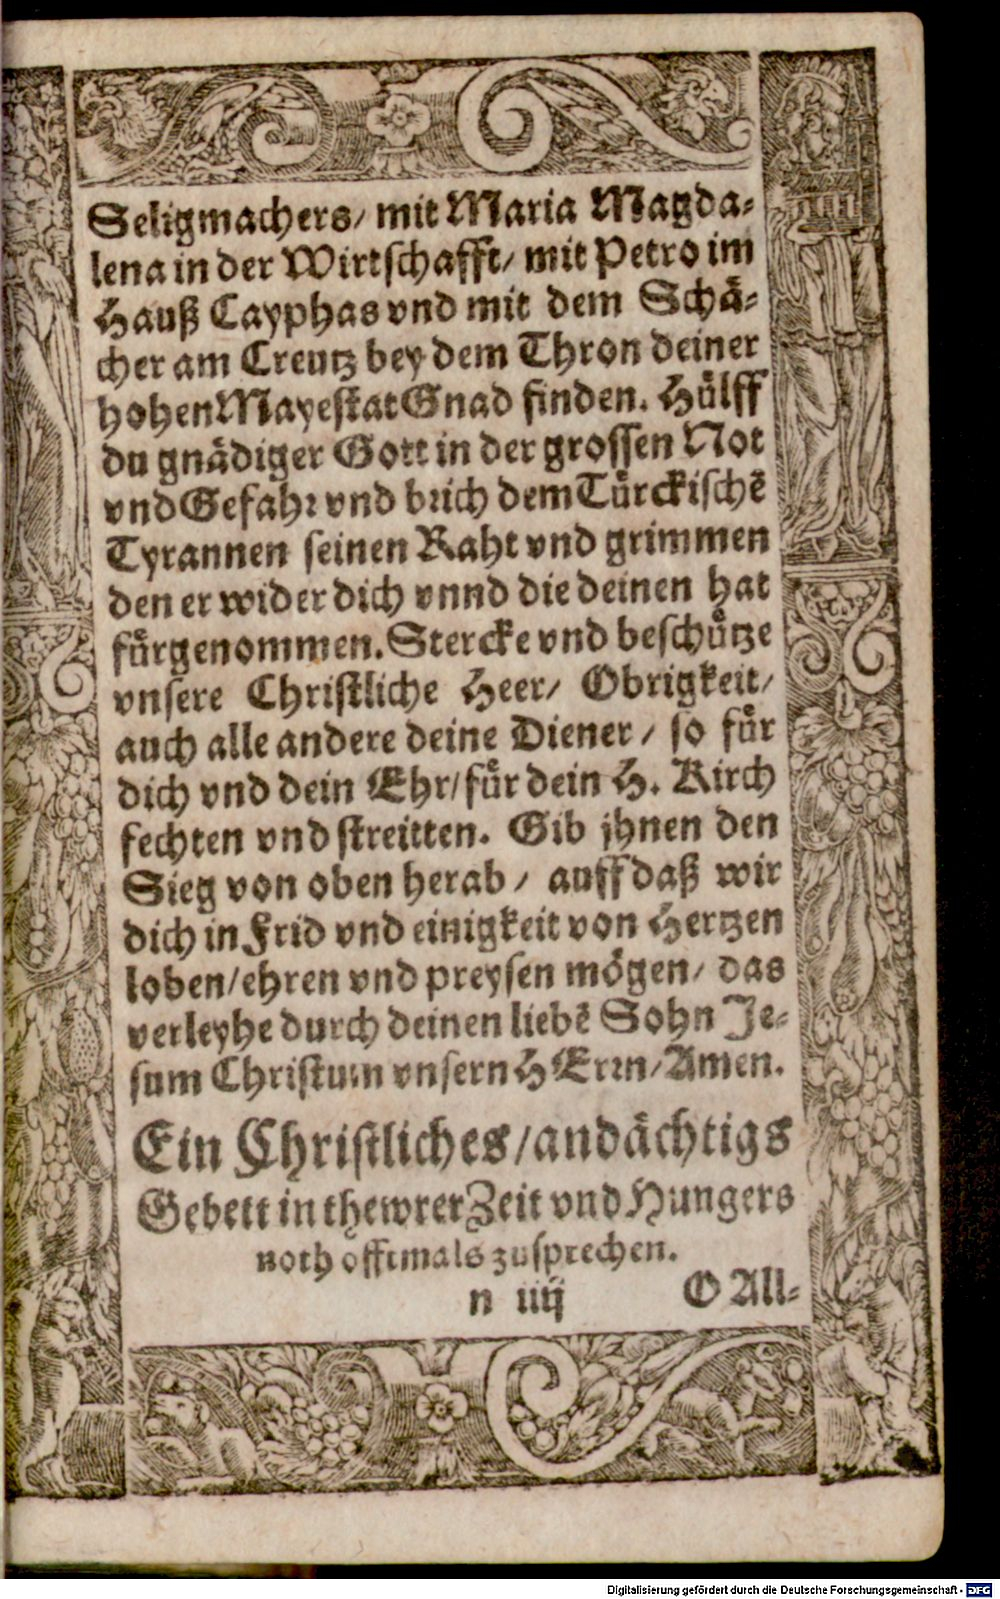 Seligmachers/ mit Maria Magda-
lena in der Wirtschafft/ mit Petro im
Hauß Cayphas vnd mit dem Schä-
cher am Creutz bey dem Thron deiner
hohen Mayestat Gnad finden. Hülff
du gnädiger Gott in der grossen Not
vnd Gefahr vnd brich dem Türckischē
Tyrannen seinen Raht vnd grimmen
den er wider dich vnnd die deinen hat
fürgenommen. Stercke vnd beschütze
vnsere Christliche Heer/ Obrigkeit/
auch alle andere deine Diener/ so für
dich vnd dein Ehr/ für dein H. Kirch
fechten vnd streitten. Gib jhnen den
Sieg von oben herab/ auff daß wir
dich in Frid vnd einigkeit von Hertzen
loben/ ehren vnd preysen mögen/ das
verleyhe durch deinen liebē Sohn Je-
sum Christum vnsern HErrn/ Amen.
Ein Christliches/ andächtigs
Gebett in thewrer Zeit vnd Hungers
noth offtmals zusprechen.
n iiij O All-
Digitalisierung gefördert durch die Deutsche Forschungsgemeinschaft - DFG